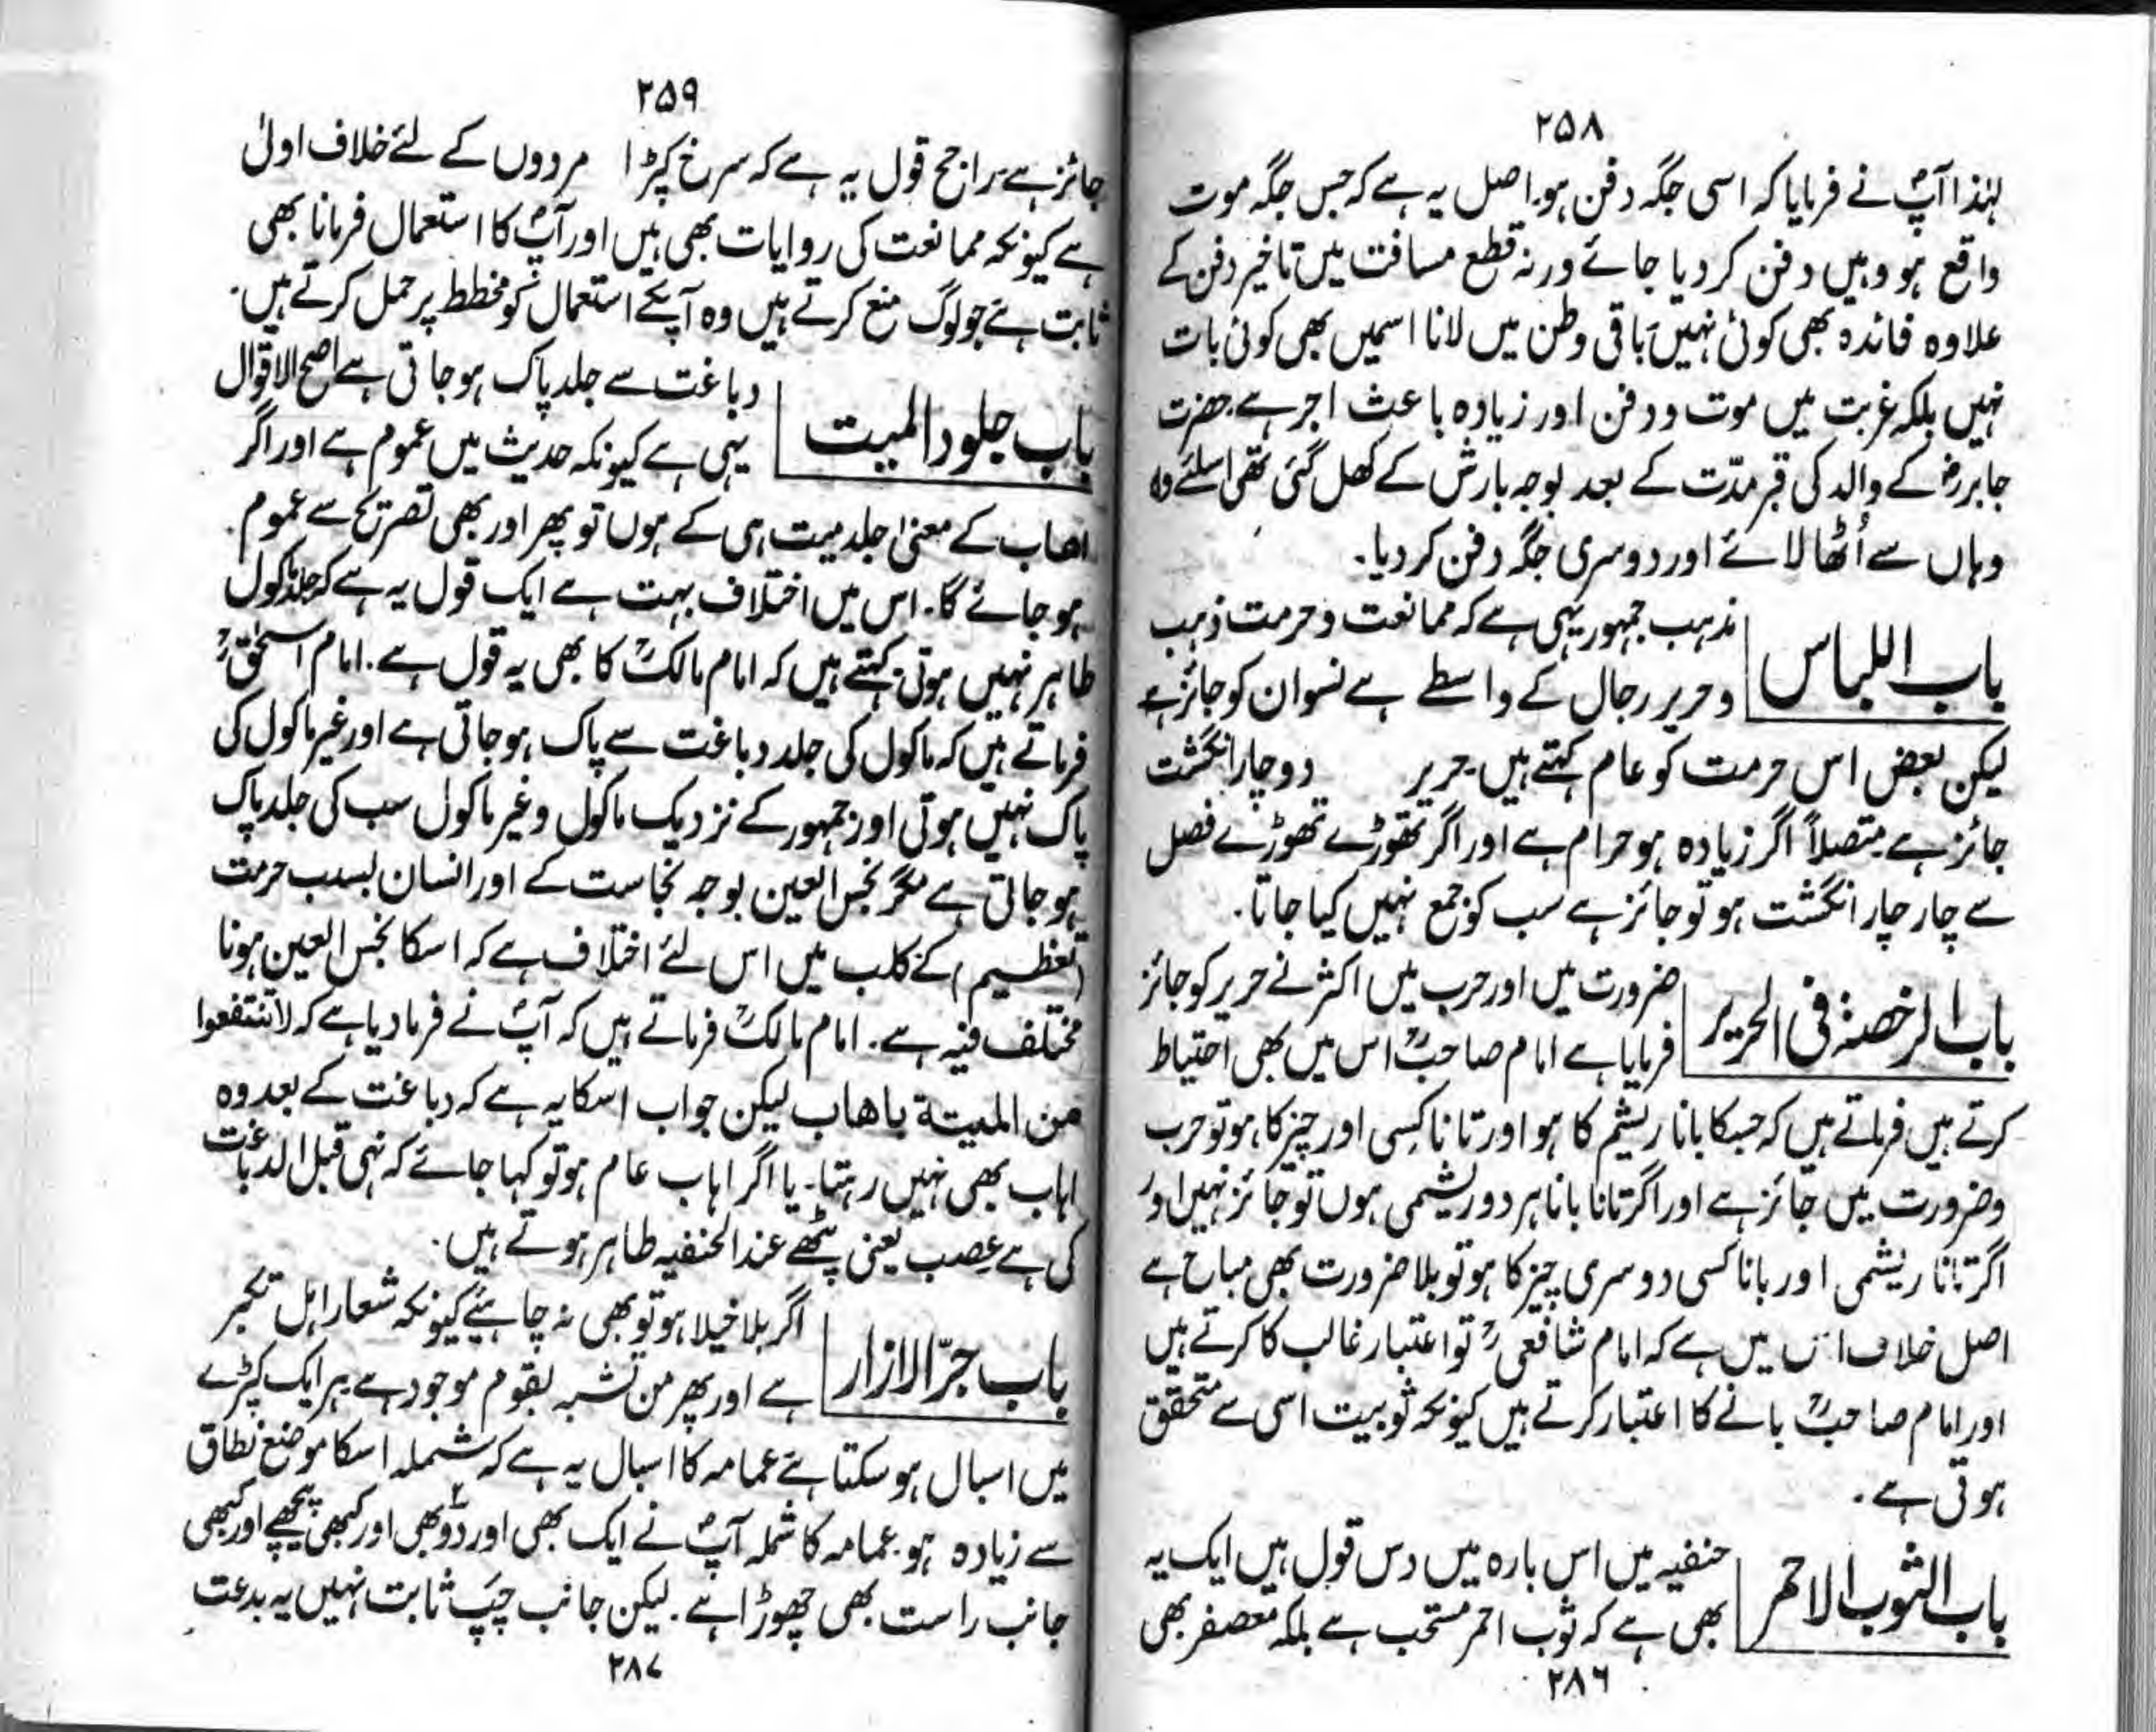 ۲۵۸
لہٰذا آپؐ نے فرمایا کہ اسی جگہ دفن ہو۔ اصل یہ ہے کہ جس جگہ موت
واقع ہو وہیں دفن کر دیا جائے ورنہ قطع مسافت میں تاخیر دفن کے
علاوہ فائدہ بھی کوئی نہیں باقی وطن میں لانا اسمیں بھی کوئی بات
نہیں بلکہ غربت میں موت و دفن اور زیادہ باعث اجر ہے۔ حضرت
جابررضؓ کے والد کی قبر مدّت کے بعد بوجہ بارش کے کھل گئی تھی اسلئے وہ
وہاں سے اُٹھا لائے اور دوسری جگہ دفن کر دیا۔
باب اللباس
مذہب جمہور یہی ہے کہ ممانعت و حرمت ذہب
و حریر رجال کے واسطے ہے نسوان کو جائز ہے
لیکن بعض اس حرمت کو عام کہتے ہیں۔ حریر دو چار انگشت
جائز ہے متصلاً اگر زیادہ ہو حرام ہے اور اگر تھوڑے تھوڑے فصل
سے چار چار انگشت ہو تو جائز ہے سب کو جمع نہیں کیا جاتا۔
باب الرخصۃ فی الحریر
ضرورت میں اور حرب میں اکثر نے حریر کو جائز
فرمایا ہے امام صاحبؒ اس میں بھی احتیاط
کرتے ہیں فرماتے ہیں کہ جسکا بانا ریشم کا ہو اور تانا کسی اور چیز کا ہو تو حرب
و ضرورت میں جائز ہے اور اگر تانا بانا ہر دو ریشمی ہوں تو جائز نہیں اور
اگر تانا ریشمی اور بانا کسی دوسری چیز کا ہو تو بلا ضرورت بھی مباح ہے
اصل خلاف اس میں ہے کہ امام شافعیؒ تو اعتبار غالب کا کرتے ہیں
اور امام صاحبؒ بانے کا اعتبار کرتے ہیں کیونکہ ثوبیت اسی سے متحقق
ہوتی ہے۔
باب الثوب الاحمر
حنفیہ میں اس بارہ میں دس قول ہیں ایک یہ
بھی ہے کہ ثوب احمر مستحب ہے بلکہ معصفر بھی
۲۸۶
۲۵۹
جائز ہے۔ راجح قول یہ ہے کہ سرخ کپڑا مردوں کے لئے خلاف اولیٰ
ہے کیونکہ ممانعت کی روایات بھی ہیں اور آپؐ کا استعمال فرمانا بھی
ثابت ہے جو لوگ منع کرتے ہیں وہ آپکے استعمال کو مخطط پر حمل کرتے ہیں۔
باب جلود المیت
دباغت سے جلد پاک ہو جاتی ہے اصح الاقوال
یہی ہے کیونکہ حدیث میں عموم ہے اور اگر
اھاب کے معنیٰ جلد میت ہی کے ہوں تو پھر اور بھی تصریح سے عموم۔
ہو جائے گا۔ اس میں اختلاف بہت ہے ایک قول یہ ہے کہ جلد ماکول
طاہر نہیں ہوتی کہتے ہیں کہ امام مالکؒ کا بھی یہ قول ہے۔ امام اسحٰقؒ
فرماتے ہیں کہ ماکول کی جلد دباغت سے پاک ہو جاتی ہے اور غیر ماکول کی
پاک نہیں ہوتی اور جمہور کے نزدیک ماکول و غیر ماکول سب کی جلد پاک
ہو جاتی ہے مگر نجس العین بوجہ نجاست کے اور انسان بسبب حرمت
(تعظیم) کے کلب میں اس لئے اختلاف ہے کہ اسکا نجس العین ہونا
مختلف فیہ ہے۔ امام مالکؒ فرماتے ہیں کہ آپؐ نے فرما دیا ہے کہ لا تنتفعوا
من المیتة باھاب لیکن جواب اسکا یہ ہے کہ دباغت کے بعد وہ
اہاب بھی نہیں رہتا۔ یا اگر اہاب عام ہو تو کہا جائے کہ نہی قبل الدباغت
کی ہے عصب یعنی پٹھے عند الحنفیہ طاہر ہوتے ہیں۔
باب جرّ الازار
اگر بلا خیلا ہو تو بھی نہ چاہئے کیونکہ شعار اہل تکبر
ہے اور پھر من تشبہ بقوم موجود ہے ہر ایک کپڑے
میں اسبال ہو سکتا ہے عمامہ کا اسبال یہ ہے کہ شملہ اسکا موضع نطاق
سے زیادہ ہو۔ عمامہ کا شملہ آپؐ نے ایک بھی اور دو بھی اور کبھی پیچھے اور کبھی
جانب راست بھی چھوڑا ہے۔ لیکن جانب چپ ثابت نہیں یہ بدعت
۲۸۷